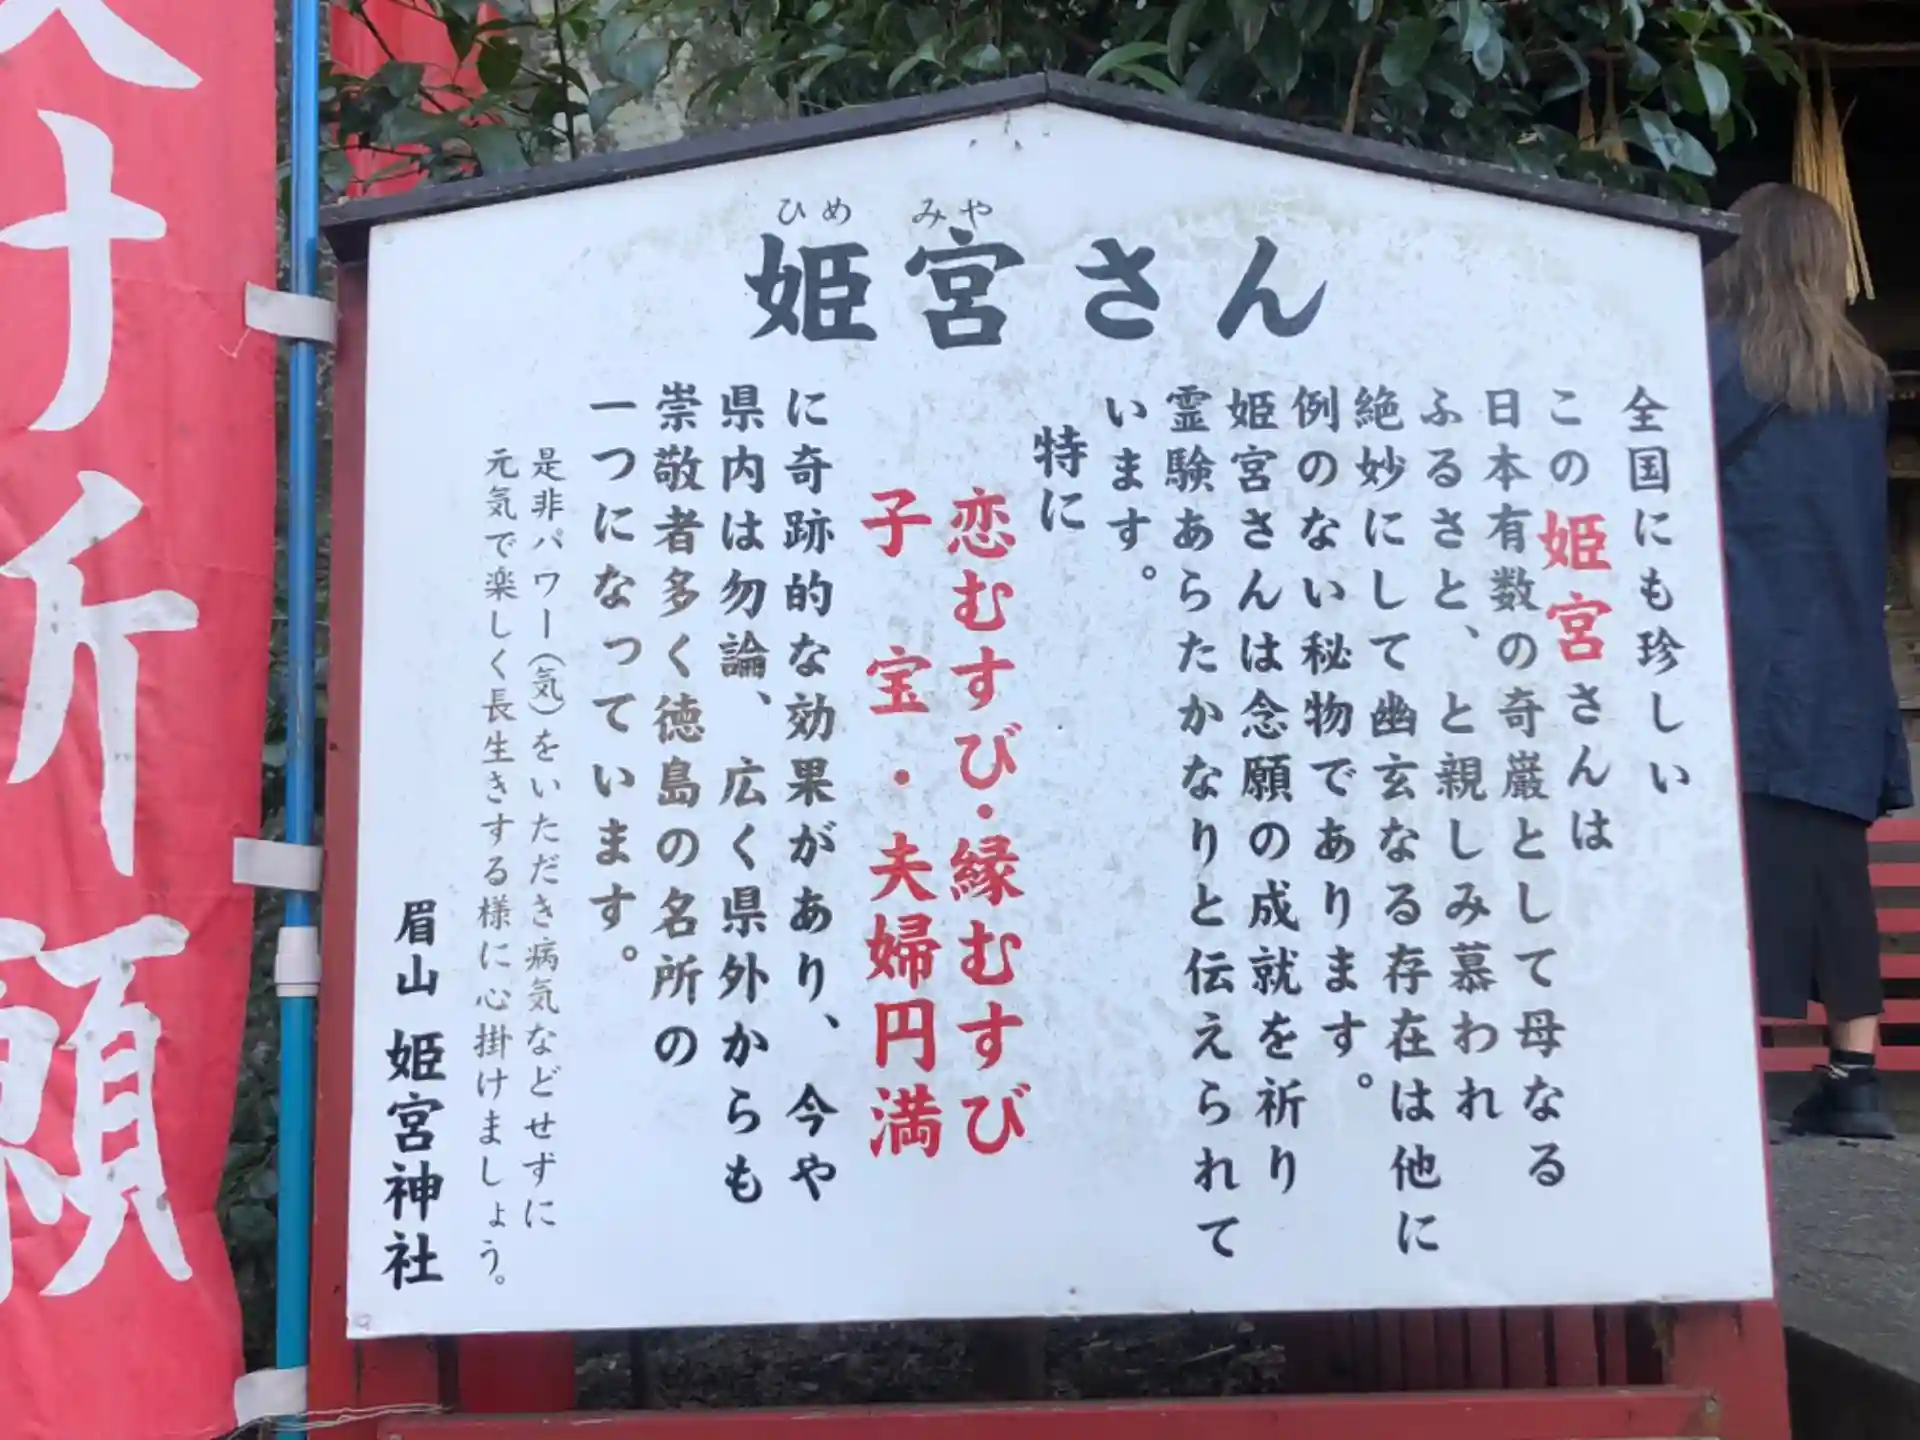 ひめ みや
姫宮さん
全国にも珍しい
この姫宮さんは
日本有数の奇巌として母なる
ふるさと、と親しみ慕われ
絶妙にして幽玄なる存在は他に
例のない秘物であります。
姫宮さんは念願の成就を祈り
霊験あらたかなりと伝えられて
います。
特に
恋むすび・縁むすび
子宝・夫婦円満
に奇跡的な効果があり、今や
県内は勿論、広く県外からも
崇敬者多く徳島の名所の
一つになっています。
是非パワー(気)をいただき病気などせずに
元気で楽しく長生きする様に心掛けましょう。
眉山 姫宮神社
ナ祈願